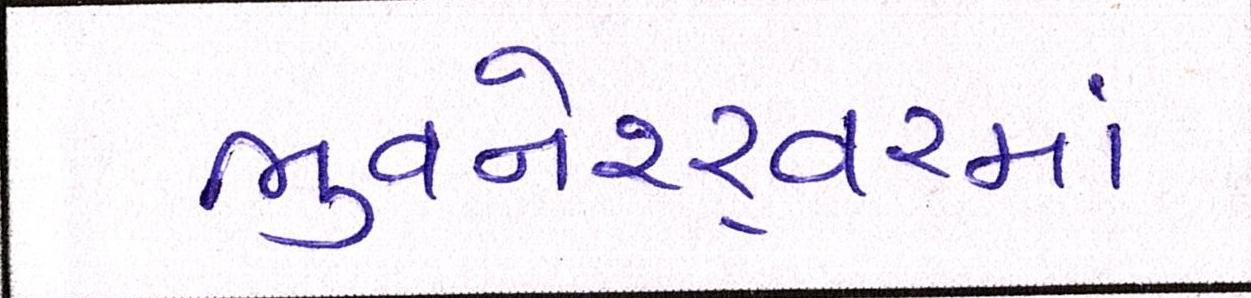 ભુવનેશ્વરમાં